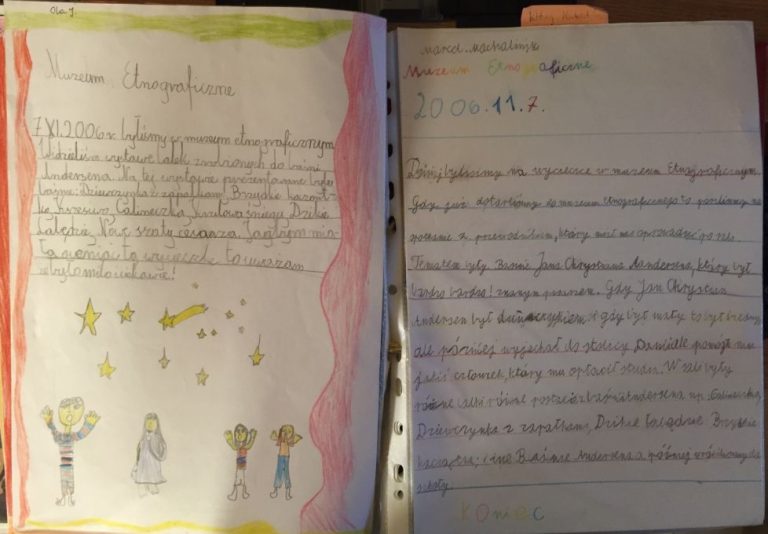 Ola J.
Muzeum Etnograficzne
7 XI 2006 r. byliśmy w muzeum etnograficznym
wystawę lalek zrobionych do baśni
Andersena. Na tej wystawie prezentowane były
baśnie: Dziewczynka z zapałkami, Brzydkie kacząt-
ko, Krzesiwo, Calineczka, Królowa śniegu, Dzikie
Łabędzie, Nowe szaty cesarza. Jagbym mia-
ła oceniać tą wycieczkę to uważam
że było miło i ciekawie!
Marcel
Muzeum Etnograficzne
2006.11.7.
Dzisiaj byliśmy na wycieczce w muzeum Etnograficznym.
Gdy już do muzeum etnograficznego to poszliśmy na
spotkanie z przewodnikiem, który miał nas oprowadzić po
Tematem były Baśnie Jana Chrystiana Andersena, który był
bardzo bardzo! znanym pisarzem. Gdy Jan Chrystian
Andersen był i gdy był mały to był biedny,
ale później wyjechał do stolicy Danii ale pomógł mu
jakiś człowiek, który mu opłacił studia. W sali były
różne lalki różne postacie z baśni Andersena np. Calineczka,
Dziewczynka z zapałkami, Dzikie łabędzie Brzydkie
kaczątko i inne Baśnie Andersena a później wróciliśmy do
szkoły.
Koniec